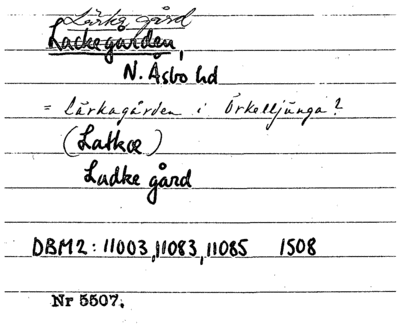 Lärka gård
Lackegården,
N. Åsbo hd
= Lärkagården i Örkelljunga?
(Latkæ)
Ladke gård
DBM2: 11003, 11083, 11085 1508
Nr 5507.